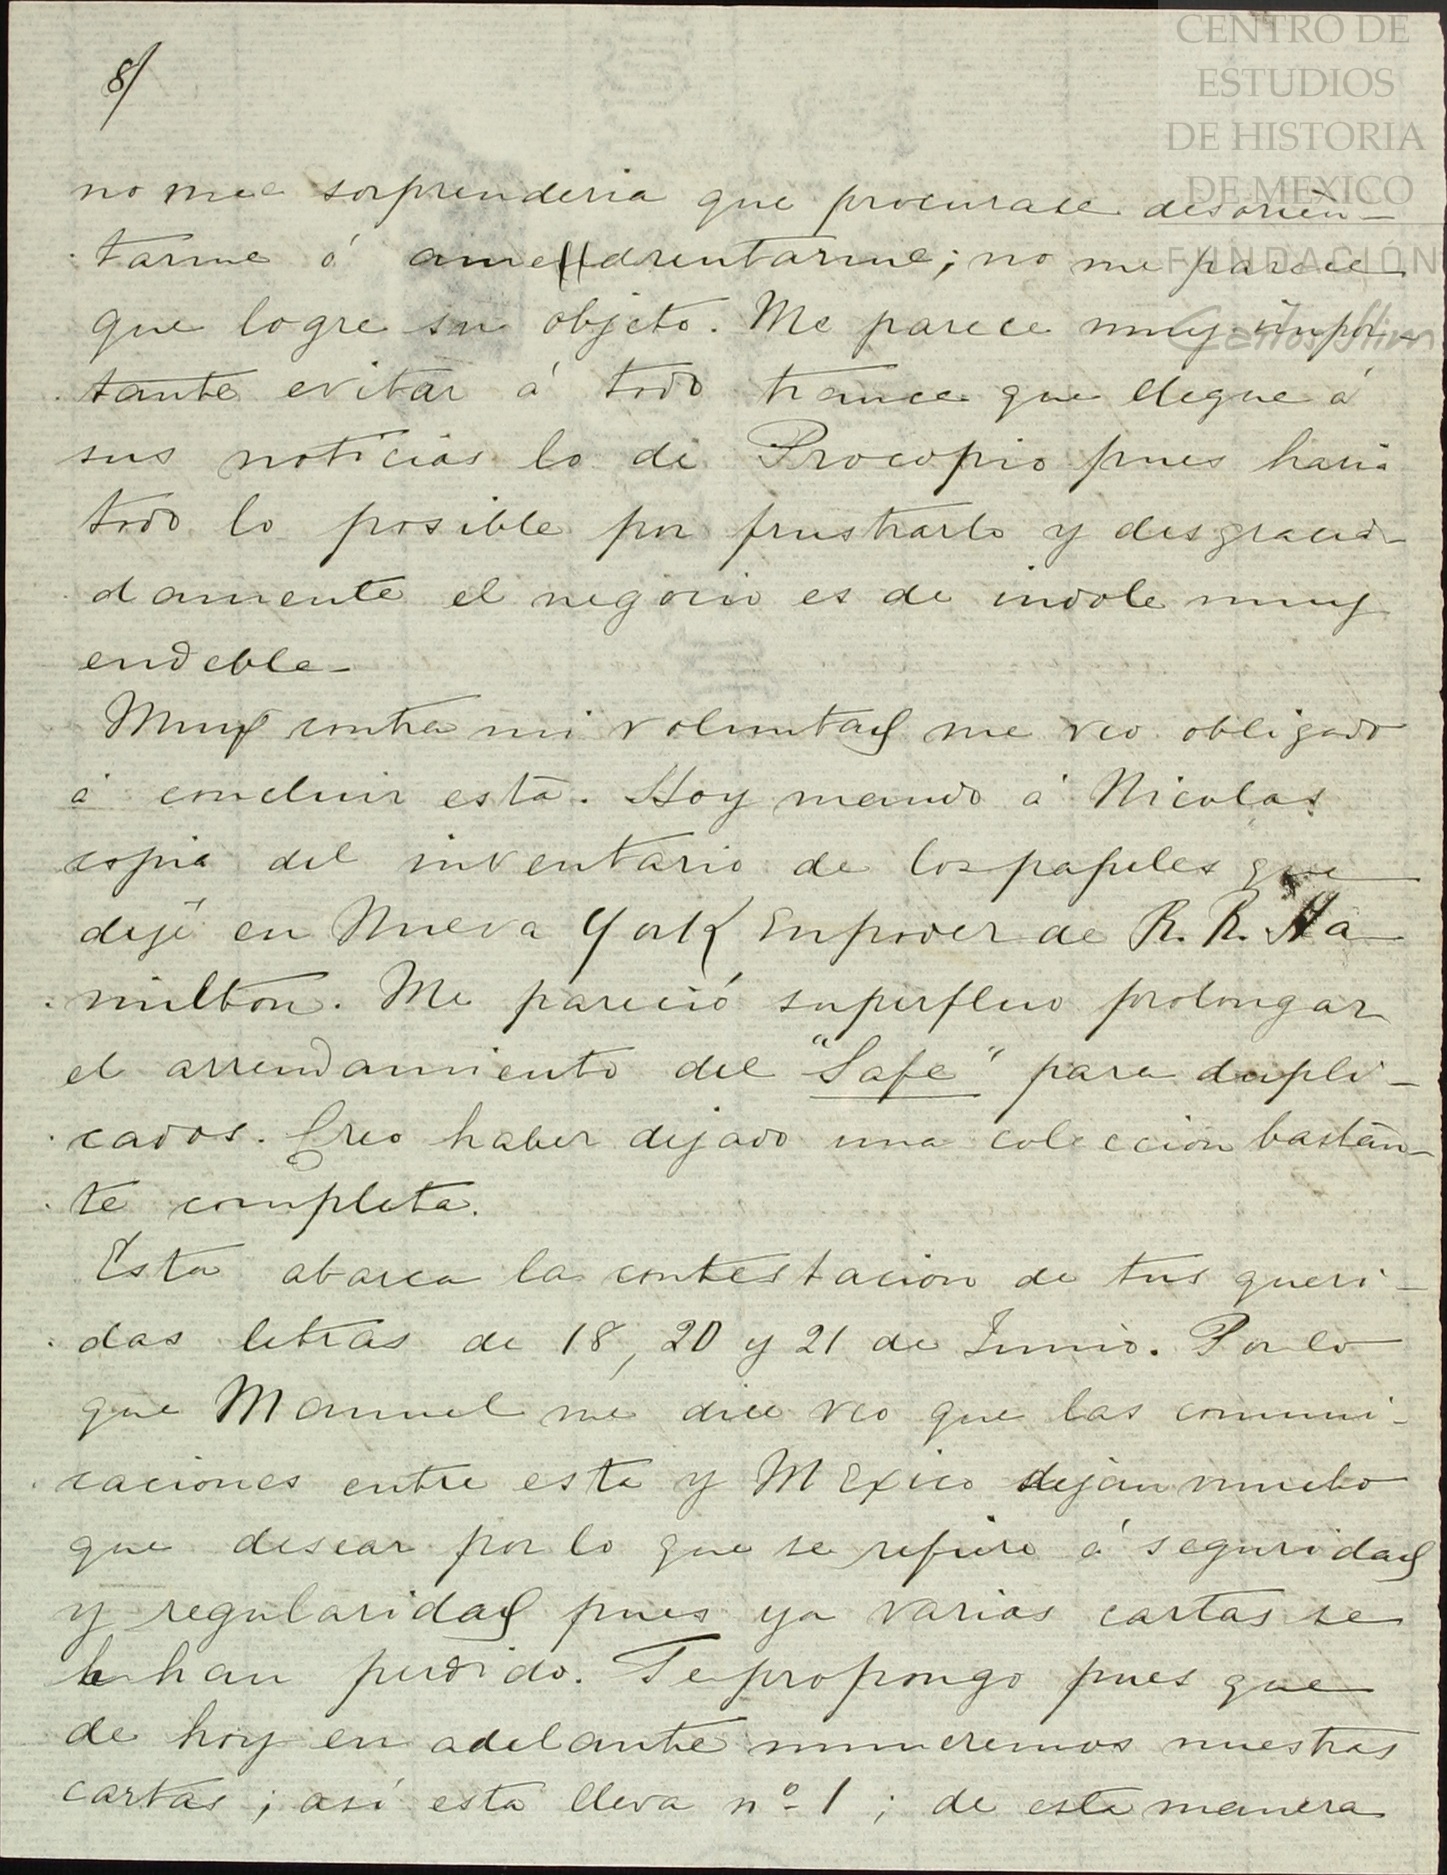 CENTRO DE
ESTUDIOS
DE HISTORIA
DE MEXICO
FUNDACIÓN
Carlos Slim
8/
no me sorprenderia que procurase desorien-
tarme ó amedrentarme; no me parece
que logre su objeto. Me parece muy impor-
tante evitar á todo trance que llegue á
sus noticias lo de Procopio pues haria
todo lo posible por frustrarlo y desgracia-
damente el negocio es de indole muy
endeble-
Muy contra mi voluntad me veo obligado
á concluir esta. Hoy mando á Nicolas
copia del inventario de los papeles que
dejé en Nueva York en poder de R. R. Ha-
milton. Me pareció superfluo prolongar
el arrendamiento del "Safe" para dupli-
cados. Creo haber dejado una coleccion bastan-
te completa.
Esta abarca la contestacion de tus queri-
das letras de 18, 20 y 21 de Junio. Por lo
que Manuel me dice veo que las comuni-
caciones entre esta y Mexico dejan mucho
que desear por lo que se refiere á seguridad
y regularidad pues ya varias cartas se
le han perdido. Te propongo pues que
de hoy en adelante numeremos nuestras
cartas; así esta lleva nº 1; de esta manera